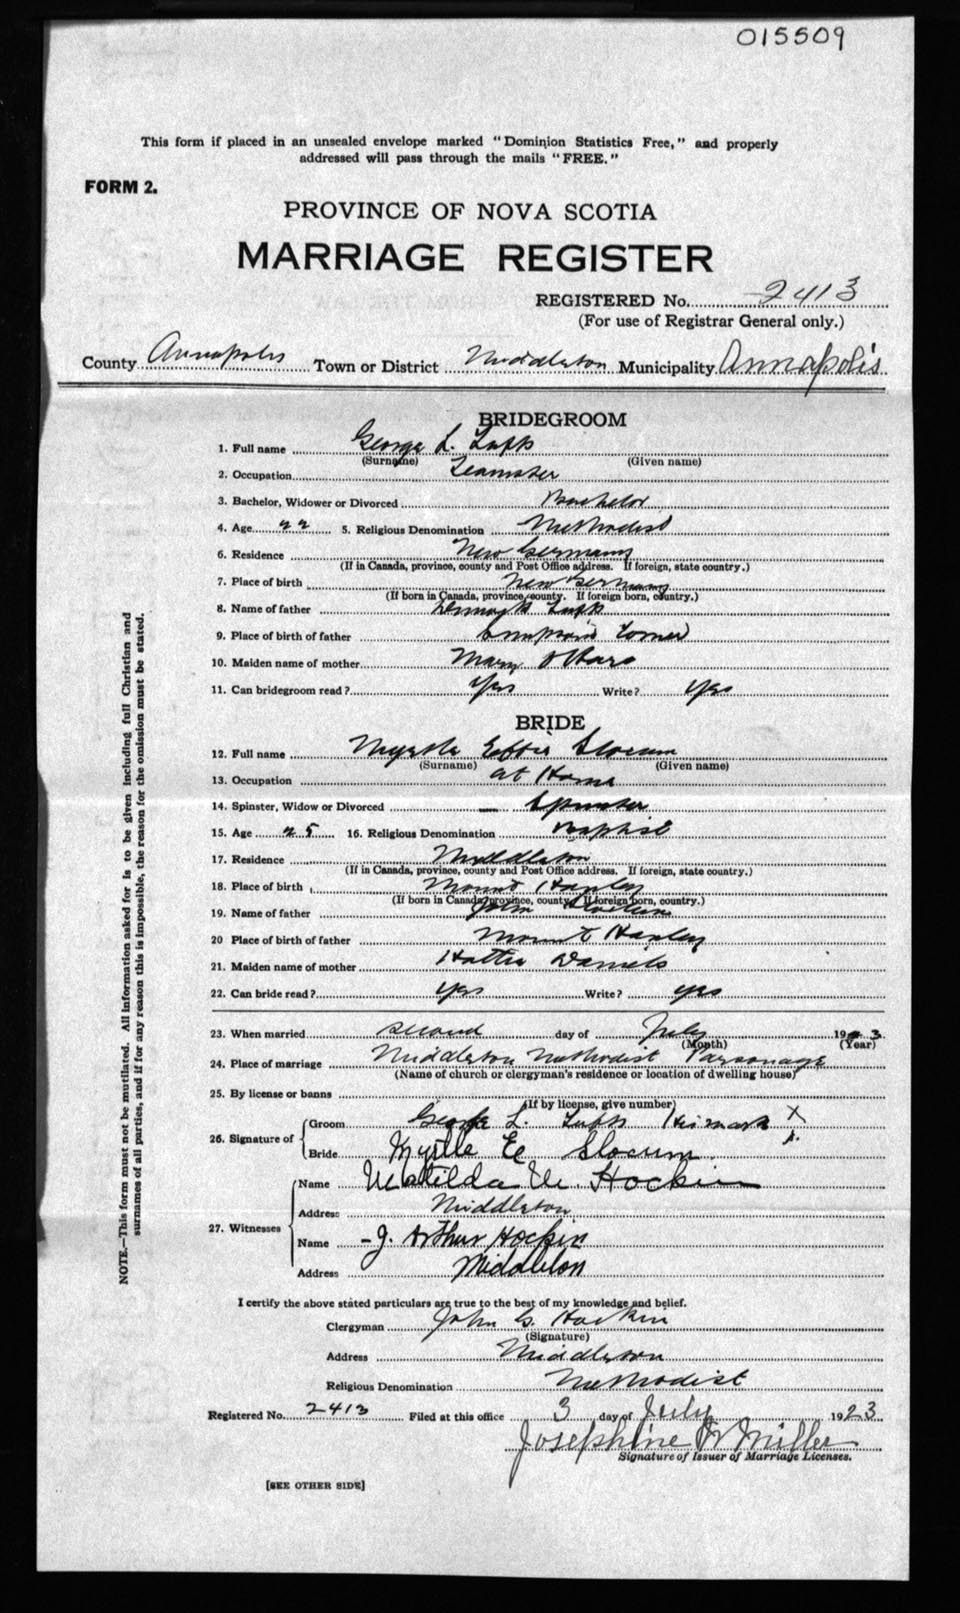 015509
This form if placed in an unsealed envelope marked "Dominion Statistics Free," and properly
addressed will pass through the mails "FREE."
FORM 2.
PROVINCE OF NOVA SCOTIA
MARRIAGE REGISTER
REGISTERED No. 2413
(For use of Registrar General only.)
County Annapolis Town or District Middleton Municipality Annapolis
BRIDEGROOM
1. Full name George L.
(Surname) (Given name)
2. Occupation Teamster
3. Bachelor, Widower or Divorced Bachelor
4. Age 22 5. Religious Denomination Methodist
6. Residence New Germany
(If in Canada, province, county and Post Office address. If foreign, state country.)
7. Place of birth New Germany
(If born in Canada, province, county. If foreign born, country.)
8. Name of father
9. Place of birth of father
10. Maiden name of mother Mary O'Hara
11. Can bridegroom read? Yes Write? yes
BRIDE
12. Full name Myrtle Effie Slocum
(Surname) (Given name)
13. Occupation at Home
14. Spinster, Widow or Divorced — Spinster
15. Age 25 16. Religious Denomination Baptist
17. Residence Middleton
(If in Canada, province, county and Post Office address. If foreign, state country.)
18. Place of birth Mount Hanley
(If born in Canada, province, county. If foreign born, country.)
19. Name of father John Slocum
20 Place of birth of father Mount Hanley
21. Maiden name of mother Hattie Daniels
22. Can bride read? yes Write? yes
23. When married second day of July 19 3
(Month) (Year)
24. Place of marriage Middleton Methodist Parsonage
(Name of church or clergyman's residence or location of dwelling house)
25. By license or banns
(If by license, give number)
26. Signature of Groom George L. His mark X
Bride Myrtle E Slocum.
27. Witnesses Name Matilda M. Hockin
Address Middleton
Name J. Arthur Hockin
Address Middleton
I certify the above stated particulars are true to the best of my knowledge and belief.
Clergyman John G. Hockin
(Signature)
Address Middleton
Religious Denomination Methodist
Registered No. 2413 Filed at this office 3 day of July 1923
Josephine Miller
Signature of Issuer of Marriage Licenses.
[SEE OTHER SIDE]
NOTE.—This form must not be mutilated. All information asked for is to be given including full Christian and
surnames of all parties, and if for any reason this is impossible, the reason for the omission must be stated.